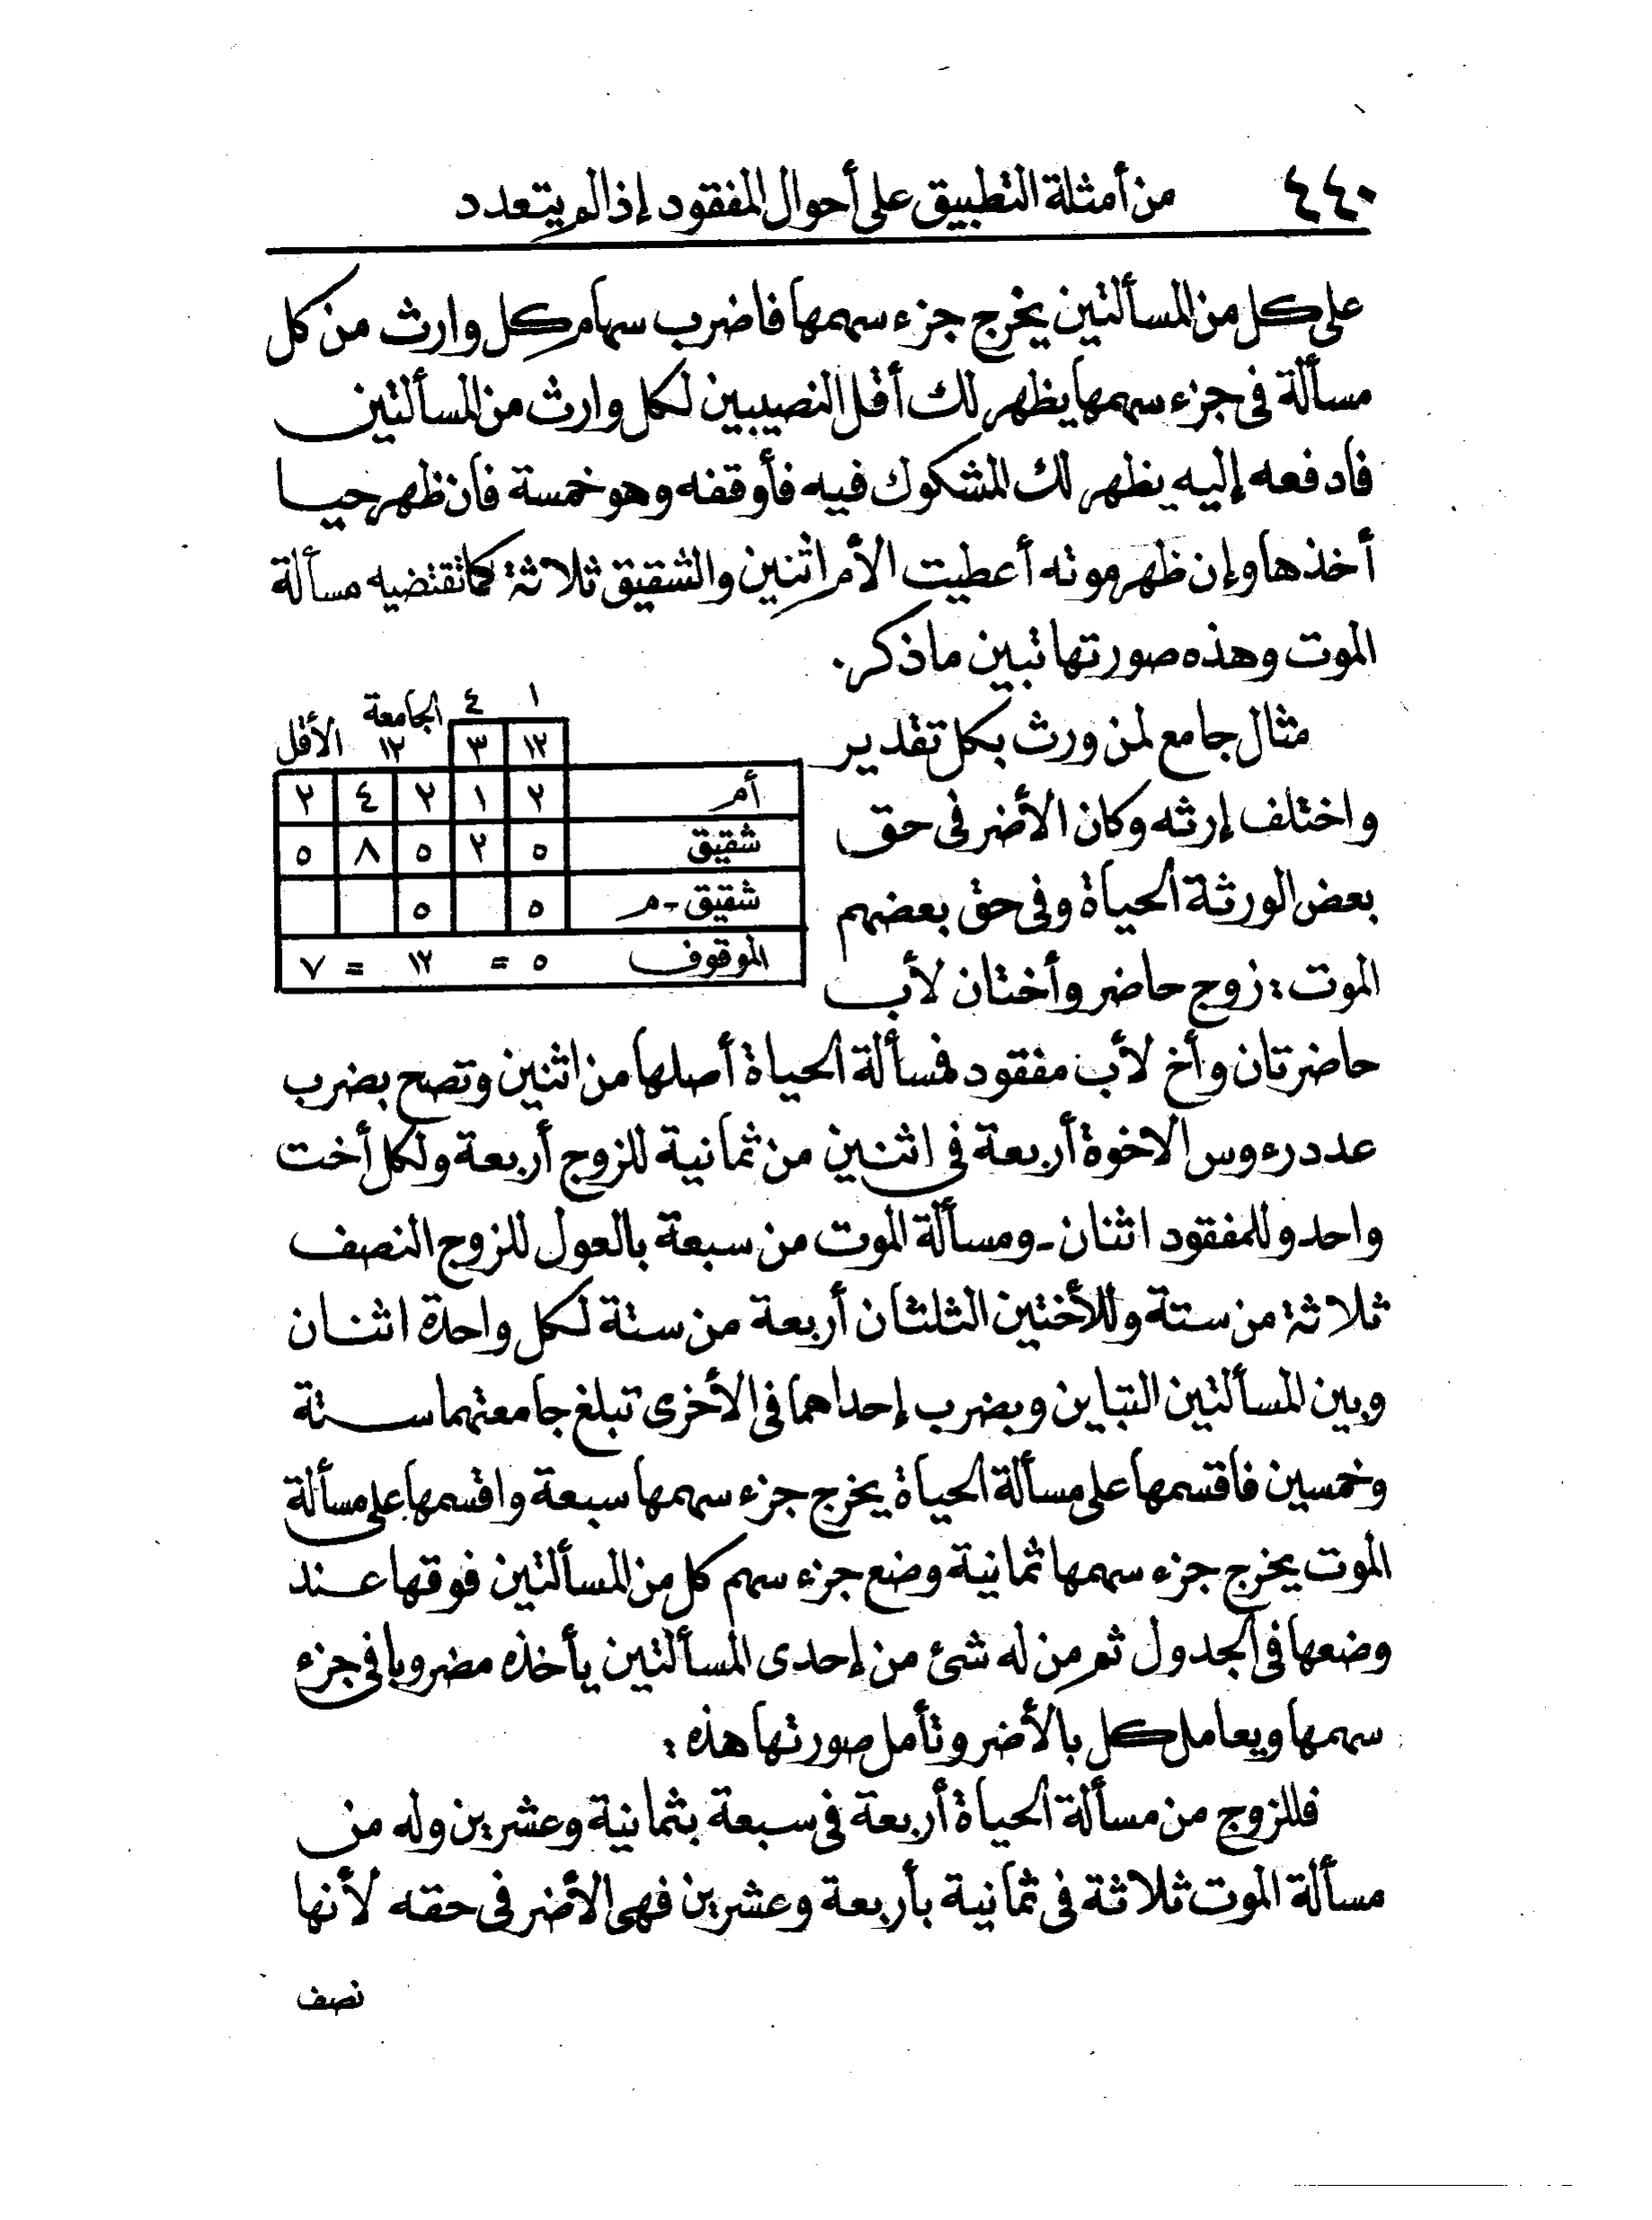 ٤٤٠ من أمثلة التطبيق على أحوال المفقود إذا لم يتعدد
على كل من المسألتين يخرج جزء سهمها فاضرب سهام كل وارث من كل
مسألة فى جزء سهمها يظهر لك أقل النصيبين لكل وارث من المسألتين
فادفعه إليه يظهر لك المشكوك فيه فأوقفه وهو خمسة فان ظهر حيا
أخذها وإن ظهر موته أعطيت الأم اثنين والشقيق ثلاثة كما تقتضيه مسألة
الموت وهذه صورتها تبين ما ذكر.
مثال جامع لمن ورث بكل تقدير
واختلف إرثه وكان الأضر فى حق
بعض الورثة الحياة وفى حق بعضهم
الموت: زوج حاضر وأختان لأب
١ ٤ الجامعة
١٢ ٣ ١٢ الأقل
أم ٢ ١ ٢ ٤ ٢
شقيق ٥ ٢ ٥ ٨ ٥
شقيق - م ٥ ٥
الموقوف ٥ = ١٢ = ٧
حاضرتان وأخ لأب مفقود فمسألة الحياة أصلها من اثنين وتصح بضرب
عدد رءوس الاخوة أربعة فى اثنين من ثمانية للزوج أربعة ولكل أخت
واحد وللمفقود اثنان - ومسألة الموت من سبعة بالعول للزوج النصف
ثلاثة من ستة وللأختين الثلثان أربعة من ستة لكل واحدة اثنان
وبين المسألتين التباين وبضرب إحداهما فى الأخرى تبلغ جامعتهما ستة
وخمسين فاقسمها على مسألة الحياة يخرج جزء سهمها سبعة واقسمها على مسألة
الموت يخرج جزء سهمها ثمانية وضع جزء سهم كل من المسألتين فوقها عند
وضعها فى الجدول ثم من له شئ من إحدى المسألتين يأخذه مضروبا فى جزء
سهمها ويعامل كل بالأضر وتأمل صورتها هذه:
فللزوج من مسألة الحياة أربعة فى سبعة بثمانية وعشرين وله من
مسألة الموت ثلاثة فى ثمانية بأربعة وعشرين فهى الأضر فى حقه لأنها
نصف